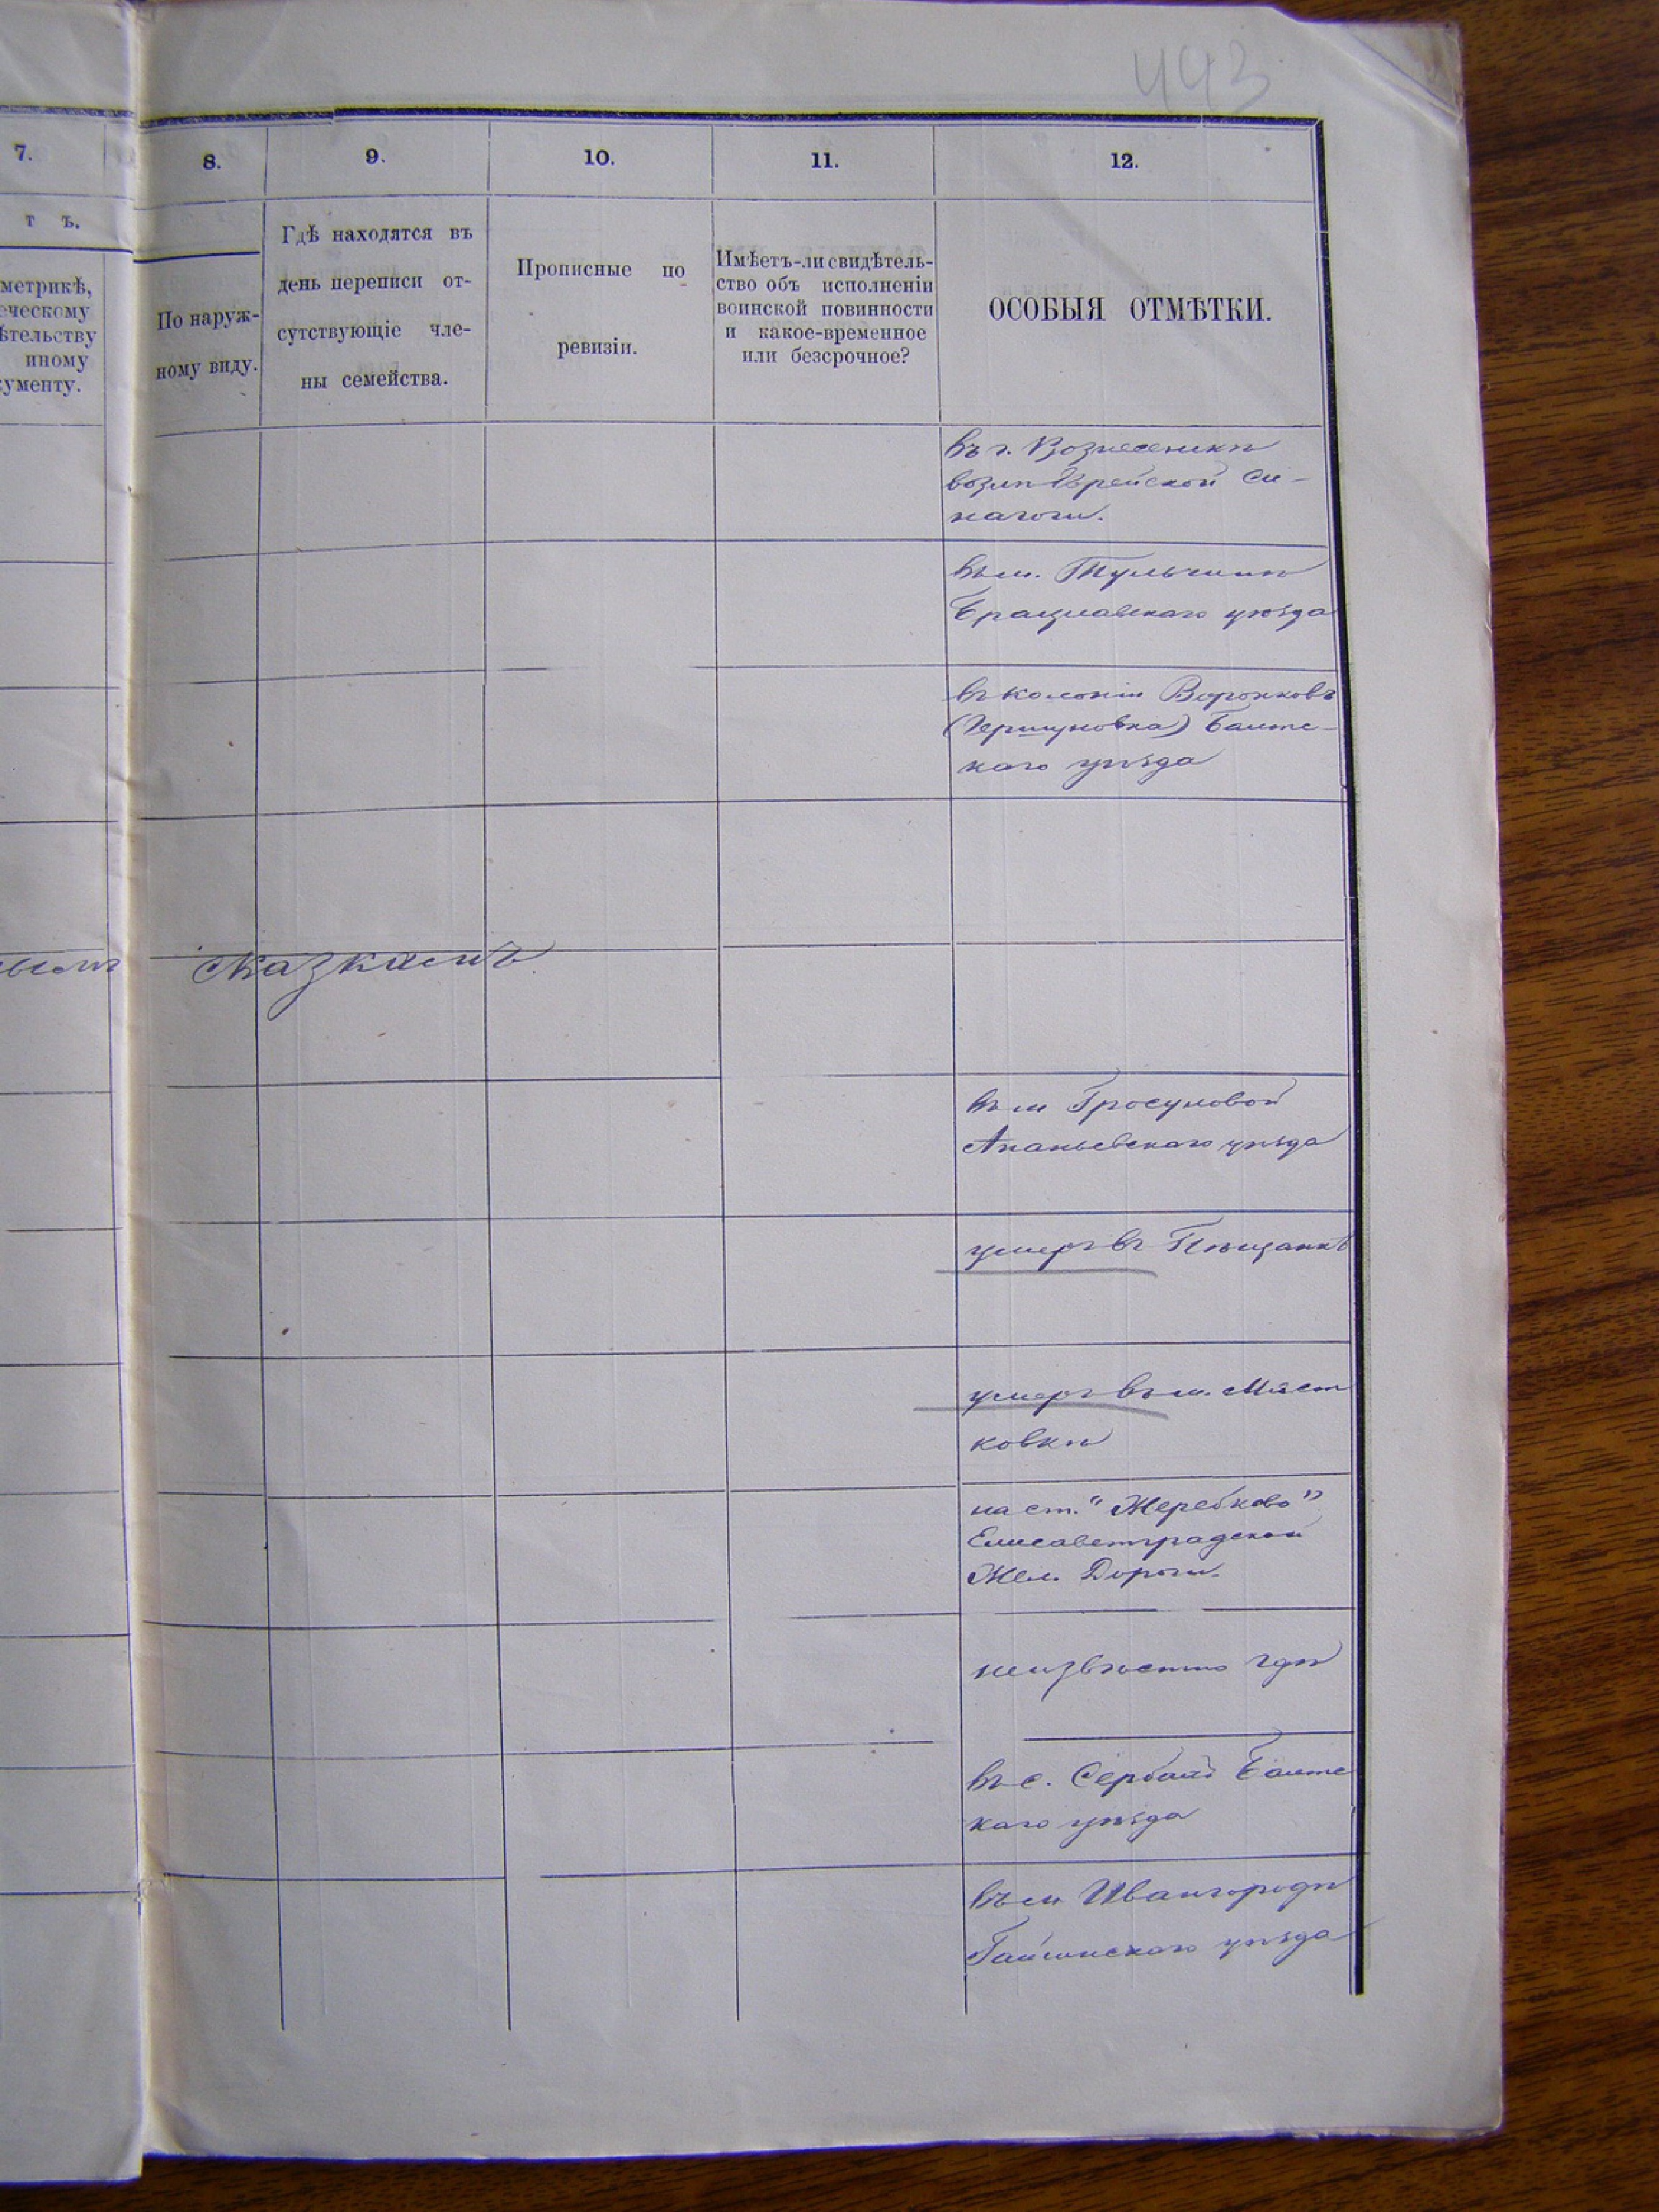 443
7. 8. 9. 10. 11. 12.
т ъ.
метрикѣ,
еческому
ѣтельству
иному
кументу.
По наруж-
ному виду.
Гдѣ находятся въ
день переписи от-
сутствующіе чле-
ны семейства.
Прописные по
ревизіи.
Имѣетъ-ли свидѣтель-
ство объ исполненіи
воинской повинности
и какое-временное
или безсрочное?
ОСОБЫЯ ОТМѢТКИ.
въ г. Вознесенкѣ
возлѣ Еврейской Си-
нагоги.
въ м. Тульчинѣ
Брацлавскаго уѣзда
въ колоніи Воронковъ
(Гершуновка) Балтс-
каго уѣзда
сказкамъ
въ м Гросуловой
Ананьевскаго уѣзда
умеръ въ Пѣщанкѣ
умеръ въ м. Мяст
ковкѣ
на ст. "Жеребково"
Елисаветградской
Жел. Дороги.
неизвѣстно гдѣ
въ с. Балтс
каго уѣзда
въ м Ивангородѣ
Гайсинскаго уѣзда